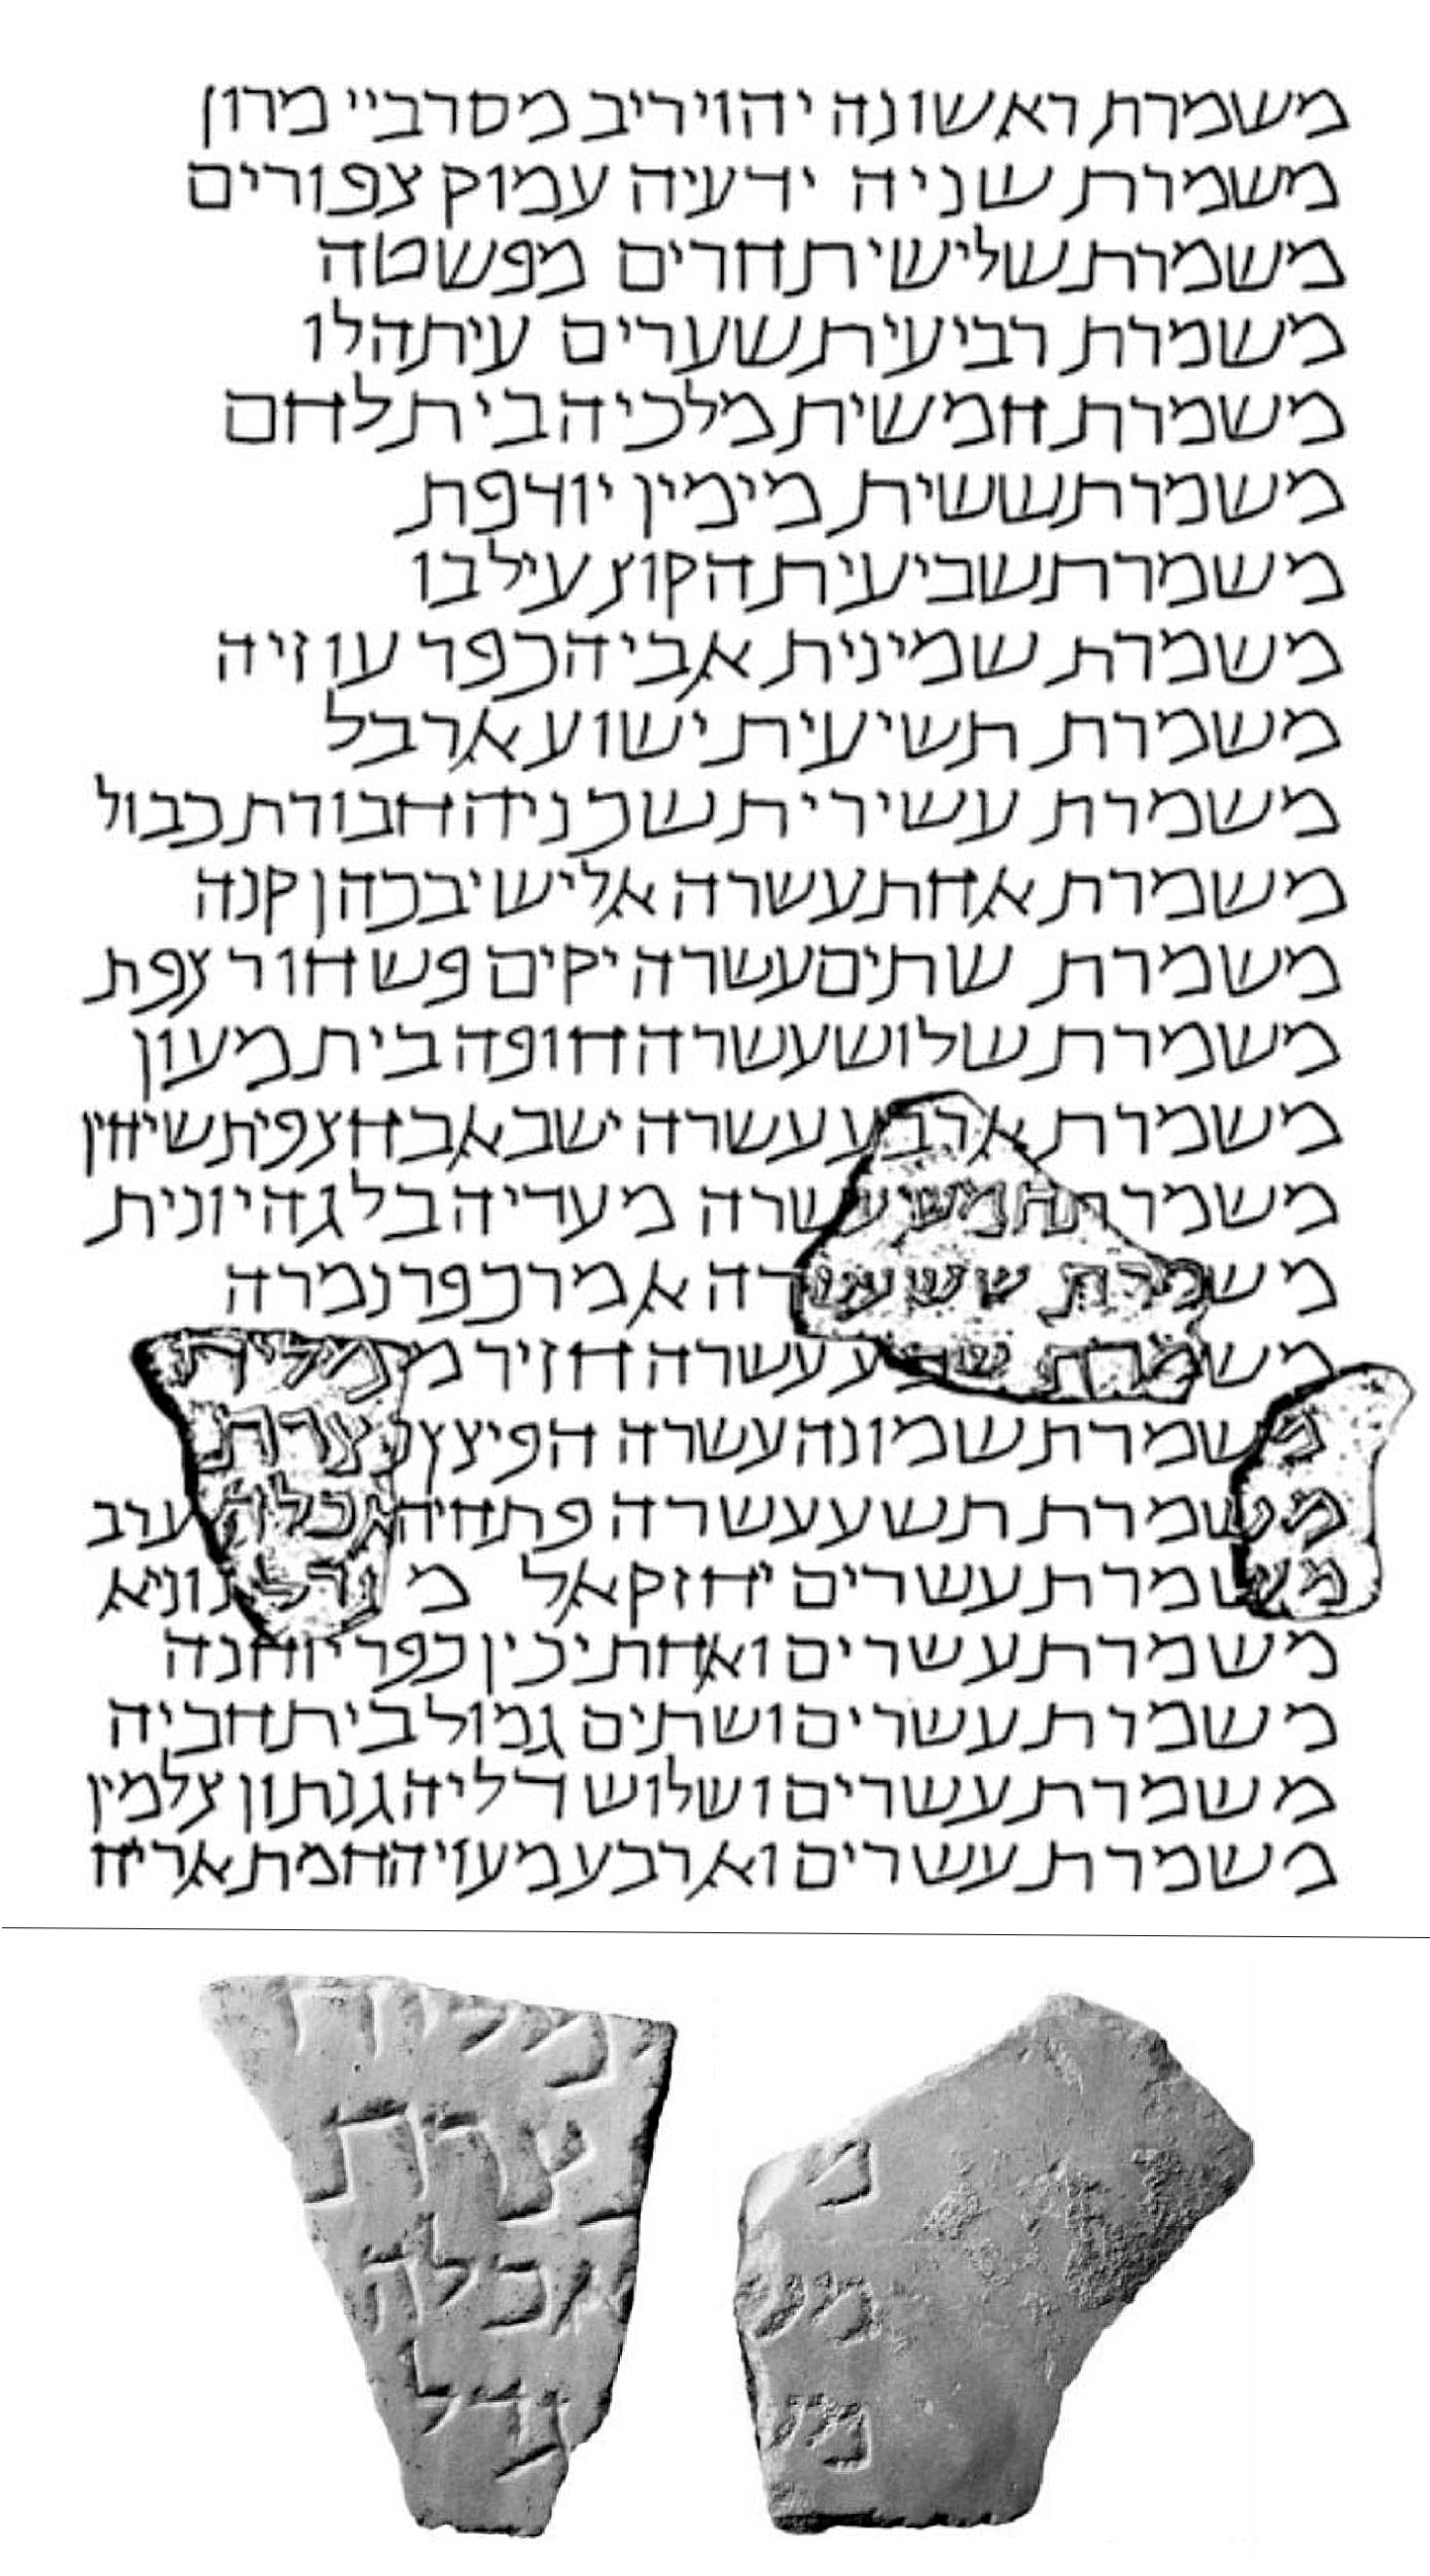 משמרת ראשונה יהויריב מסרביי מרון
משמרת שניה ידעיה עמוק צפורים
משמרת שלישית חרים מפשטה
משמרת רביעית שערים עיתהלו
משמרת חמשית מלכיה בית לחם
משמרת ששית מימין יודפת
משמרת שביעית הקוץ עילבו
משמרת שמינית אביה כפר עוזיה
משמרת תשיעית ישוע ארבל
משמרת עשירית שכניה חבורת כבול
משמרת אחת עשרה אלישיב כהן קנה
משמרת שתים עשרה יקים פשחור צפת
משמרת שלוש עשרה חופה בית מעון
משמרת ארבע עשרה ישבאב חצפית שיחין
משמרת חמש עשרה מעדיה בלגה יונית
משמרת שש עשרה אמר כפר נמרה
משמרת שבע עשרה חזיר ממליח
משמרת שמונה עשרה הפיצץ נצרת
משמרת תשע עשרה פתחיה אכלה ערב
משמרת עשרים יחזקאל מגדל נוניא
משמרת עשרים ואחת יכין כפר יוחנה
משמרת עשרים ושתים גמול בית חביה
משמרת עשרים ושלוש דליה גנתון צלמין
משמרת עשרים וארבע מעזיה חמת אריח
ממלית
צרת
אכלה
גדל
מ
מש
מש